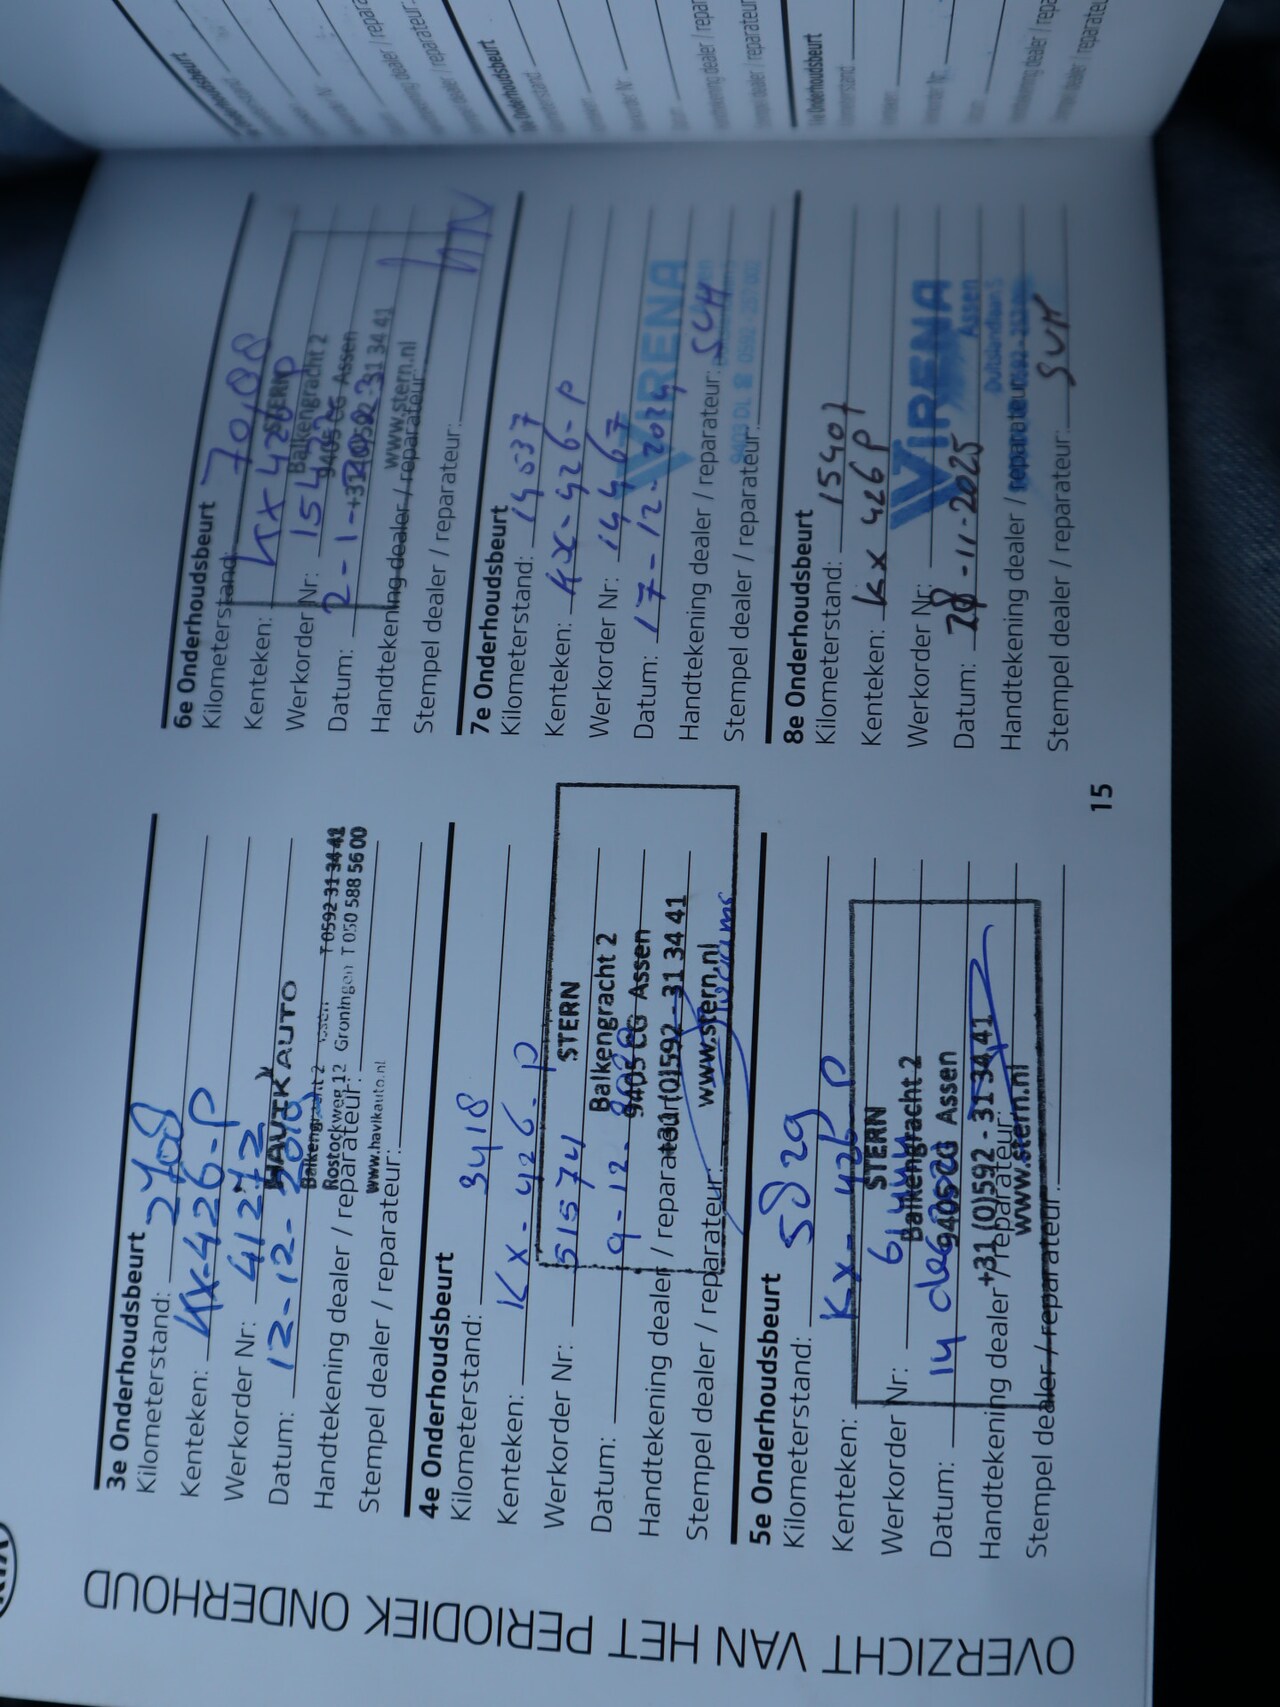 OVERZICHT VAN HET PERIODIEK ONDERHOUD
3e Onderhoudsbeurt
Kilometerstand: 2708
Kenteken: KX-426-P
Werkorder Nr: 41272
Datum: 12-12-2019
HAVIK AUTO
Balkengracht 2 Assen T 0592 31 34 41
Handtekening dealer / reparateur:
Rostockweg 12 Groningen T 050 588 56 00
www.havikauto.nl
Stempel dealer / reparateur:
4e Onderhoudsbeurt
Kilometerstand: 3418
Kenteken: KX-426-P
Werkorder Nr: 51574
STERN
Datum: 9-12-
Balkengracht 2
9405 CG Assen
Handtekening dealer / reparateur:
+31 (0)592 - 31 34 41
www.stern.nl
Stempel dealer / reparateur:
5e Onderhoudsbeurt
Kilometerstand: 5829
Kenteken: KX-426-P
STERN
Werkorder Nr:
Balkengracht 2
Datum: 14 dec
9405 CG Assen
+31 (0)592 - 31 34 41
Handtekening dealer / reparateur:
www.stern.nl
Stempel dealer / reparateur:
6e Onderhoudsbeurt
Kilometerstand: 7088
Kenteken: KX 426 P
STERN
Werkorder Nr:
Balkengracht 2
9405 CG Assen
Datum: 2-1-
+31 (0)592 - 31 34 41
Handtekening dealer / reparateur:
www.stern.nl
Stempel dealer / reparateur:
7e Onderhoudsbeurt
Kilometerstand: 14537
Kenteken: KX-426-P
Werkorder Nr: 14467
Datum: 17-12-2024
VIRENA
Handtekening dealer / reparateur: SCH
Stempel dealer / reparateur:
9403 DL
8e Onderhoudsbeurt
Kilometerstand: 15407
Kenteken: KX 426 P
Werkorder Nr:
VIRENA
Assen
Datum: 28-11-2025
Duitslandlaan 5
Handtekening dealer / reparateur:
Stempel dealer / reparateur:
15